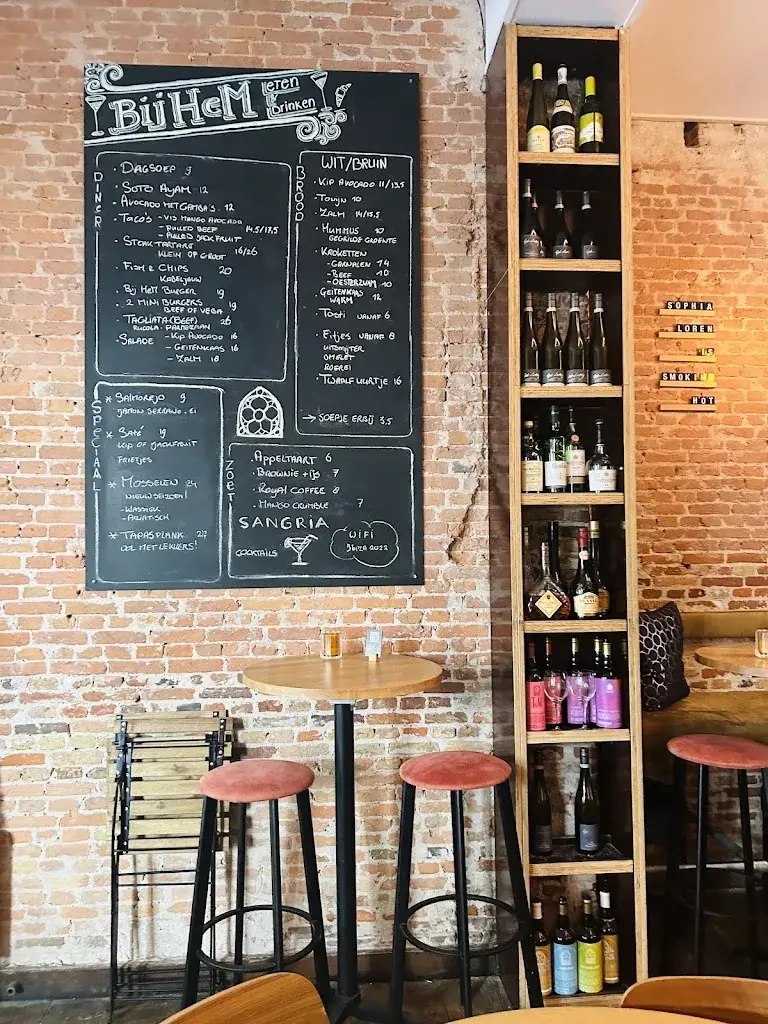 BIJ HEM ETEN & Drinken
DINER
• DAGSOEP 9
• SOTO AYAM 12
• AVOCADO MET GAMBA'S 12
• TACO'S - VIS MANGO AVOCADO
- PULLED BEEF 14.5/17,5
- PULLED JACKFRUIT
• STEAK TARTARE 16/26
KLEIN OF GROOT
• FISH & CHIPS 20
KABELJAUW
• Bij HEM BURGER 19
• 2 MINI BURGERS 19
BEEF OF VEGA
• TAGLIATA (BEEF) 26
RUCOLA - PARMEZAAN
• SALADE - KIP AVOCADO 16
- GEITENKAAS 16
- ZALM 18
BROOD
WIT/BRUIN
• KIP AVOCADO 11/13.5
• TONIJN 10
• ZALM 14/15.5
• HUMMUS 10
GEGRILDE GROENTE
• KROKETTEN
- GARNALEN 14
- BEEF 10
- OESTERZWAM 10
• GEITENKAAS 12
WARM
• TOSTI VANAF 6
• EITJES VANAF 8
UITSMIJTER
OMELET
ROEREI
• TWAALFUURTJE 16
→ SOEPJE ERBIJ 3.5
SPECIAAL
* SALMOREJO 9
JAMON SERRANO - EI
* SATÉ 19
KIP OF JACKFRUIT
FRIETJES
* MOSSELEN 24
NIEUW SEIZOEN!
- KLASSIEK
- AZIATISCH
* TAPASPLANK 27
OOK MET LEKKERS!
ZOET
• APPELTAART 6
• BROWNIE + IJS 7
• ROYAL COFFEE 8
• MANGO CRUMBLE 7
SANGRIA
COCKTAILS
WIFI
IBIZA 2022
SOPHIA
LOREN
IS
SMOKIN
HOT